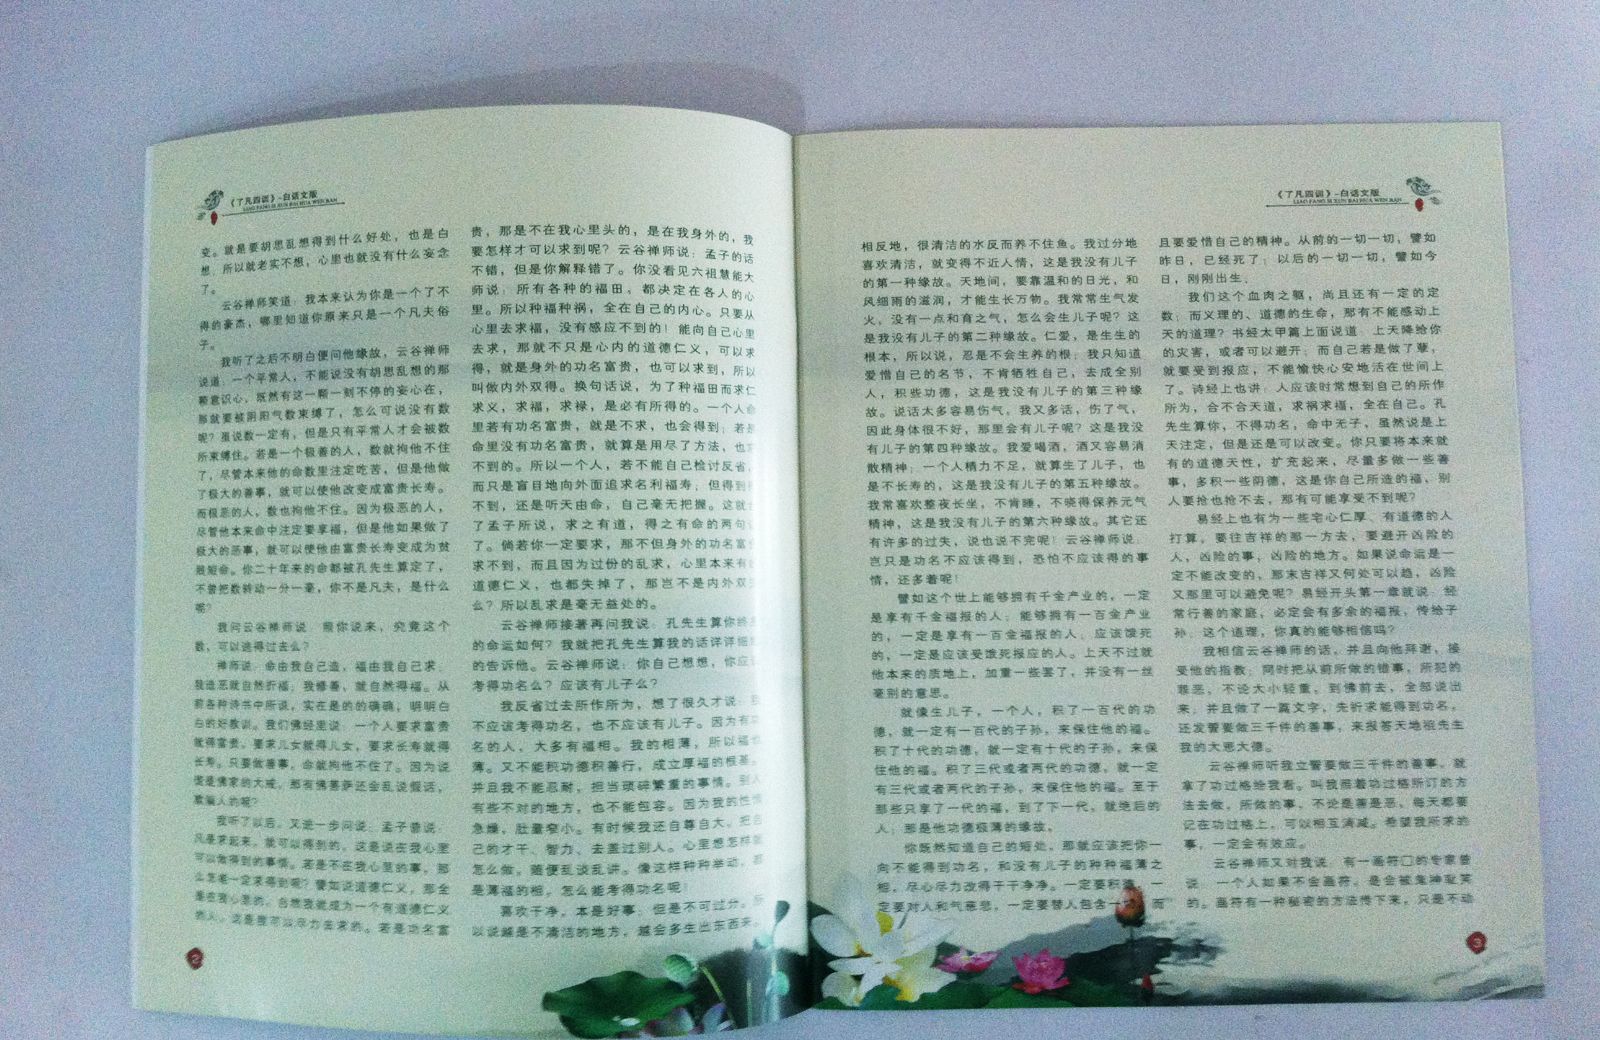 《了凡四训》-白话文版
LIAO FANG SI XUN BAI HUA WEN BAN
变。就是要胡思乱想得到什么好处，也是白
想；所以就老实不想，心里也就没有什么妄念
了。
云谷禅师笑道：我本来认为你是一个了不
得的豪杰，哪里知道你原来只是一个凡夫俗
子。
我听了之后不明白便问他缘故，云谷禅师
说道：一个平常人，不能说没有胡思乱想的那
颗意识心，既然有这一颗一刻不停的妄心在，
那就要被阴阳气数束缚了，怎么可说没有数
呢？虽说数一定有，但是只有平常人才会被数
所束缚住。若是一个极善的人，数就拘他不住
了，尽管本来他的命数里注定吃苦，但是他做
了极大的善事，就可以使他改变成富贵长寿。
而极恶的人，数也拘他不住。因为极恶的人，
尽管他本来命中注定要享福，但是他如果做了
极大的恶事，就可以使他由富贵长寿变成为贫
贱短命。你二十年来的命都被孔先生算定了，
不曾把数转动一分一毫，你不是凡夫，是什么
呢？
我问云谷禅师说：照你说来，究竟这个
数，可以逃得过去么？
禅师说：命由我自己造，福由我自己求；
我造恶就自然折福；我修善，就自然得福。从
前各种诗书中所说，实在是的的确确，明明白
白的好教训。我们佛经里说：一个人要求富贵
就得富贵，要求儿女就得儿女，要求长寿就得
长寿。只要做善事，命就拘他不住了。因为说
谎是佛家的大戒，那有佛菩萨还会乱说假话，
欺骗人的呢？
我听了以后，又进一步问说：孟子曾说：
凡是求起来，就可以得到的，这是说在我心里
可以做得到的事情。若是不在我心里的事，那
么怎能一定求得到呢？譬如说道德仁义，那全
是在我心里的，
的人，这是我可以尽力去求的。若是功名富
贵，那是不在我心里头的，是在我身外的，我
要怎样才可以求到呢？云谷禅师说：孟子的话
不错，但是你解释错了。你没看见六祖慧能大
师说：所有各种的福田，都决定在各人的心
里。所以种福种祸，全在自己的内心。只要从
心里去求福，没有感应不到的！能向自己心里
去求，那就不只是心内的道德仁义，可以求
得，就是身外的功名富贵，也可以求到，所以
叫做内外双得。换句话说，为了种福田而求仁
求义，求福，求禄，是必有所得的。一个人命
里若有功名富贵，就是不求，也会得到；若是
命里没有功名富贵，就算是用尽了方法，也
不到的。所以一个人，若不能自己检讨反省，
而只是盲目地向外面追求名利福寿；但得到
不到，还是听天由命，自己毫无把握。这就
了孟子所说，求之有道，得之有命的两句
了。倘若你一定要求，那不但身外的功名富
求不到，而且因为过份的乱求，心里本来有
道德仁义，也都失掉了，那岂不是内外双
么？所以乱求是毫无益处的。
云谷禅师接著再问我说：孔先生算你终
的命运如何？我就把孔先生算我的话详详细
的告诉他。云谷禅师说：你自己想想，你应
考得功名么？应该有儿子么？
我反省过去所作所为，想了很久才说：我
不应该考得功名，也不应该有儿子。因为有功
名的人，大多有福相。我的相薄，所以福也
薄。又不能积功德积善行，成立厚福的根基。
并且我不能忍耐，担当琐碎繁重的事情。别人
有些不对的地方，也不能包容。因为我的性情
急燥，肚量窄小。有时候我还自尊自大，把自
己的才干、智力、去盖过别人。心里想怎样就
怎么做，随便乱谈乱讲。像这样种种举动，都
是薄福的相，怎么能考得功名呢！
喜欢干净，本是好事；但是不可过分。所
以说越是不清洁的地方，越会多生出东西来。
2
《了凡四训》-白话文版
LIAO FANG SI XUN BAI HUA WEN BAN
相反地，很清洁的水反而养不住鱼。我过分地
喜欢清洁，就变得不近人情，这是我没有儿子
的第一种缘故。天地间，要靠温和的日光，和
风细雨的滋润，才能生长万物。我常常生气发
火，没有一点和育之气，怎么会生儿子呢？这
是我没有儿子的第二种缘故。仁爱，是生生的
根本，所以说，忍是不会生养的根；我只知道
爱惜自己的名节，不肯牺牲自己，去成全别
人，积些功德，这是我没有儿子的第三种缘
故。说话太多容易伤气，我又多话，伤了气，
因此身体很不好，那里会有儿子呢？这是我没
有儿子的第四种缘故。我爱喝酒，酒又容易消
散精神；一个人精力不足，就算生了儿子，也
是不长寿的，这是我没有儿子的第五种缘故。
我常喜欢整夜长坐，不肯睡，不晓得保养元气
精神，这是我没有儿子的第六种缘故。其它还
有许多的过失，说也说不完呢！云谷禅师说：
岂只是功名不应该得到，恐怕不应该得的事
情，还多着呢！
譬如这个世上能够拥有千金产业的，一定
是享有千金福报的人；能够拥有一百金产业
的，一定是享有一百金福报的人；应该饿死
的，一定是应该受饿死报应的人。上天不过就
他本来的质地上，加重一些罢了，并没有一丝
毫别的意思。
就像生儿子，一个人，积了一百代的功
德，就一定有一百代的子孙，来保住他的福。
积了十代的功德，就一定有十代的子孙，来保
住他的福。积了三代或者两代的功德，就一定
有三代或者两代的子孙，来保住他的福。至于
那些只享了一代的福，到了下一代，就绝后的
人；那是他功德极薄的缘故。
你既然知道自己的短处，那就应该把你一
向不能得到功名，和没有儿子的种种福薄之
相，尽心尽力改得干干净净。一定要积德，一
定要对人和气慈悲，一定要替人包含一切，而
且要爱惜自己的精神。从前的一切一切，譬如
昨日，已经死了；以后的一切一切，譬如今
日，刚刚出生。
我们这个血肉之躯，尚且还有一定的定
数；而义理的、道德的生命，那有不能感动上
天的道理？书经太甲篇上面说道：上天降给你
的灾害，或者可以避开；而自己若是做了孽，
就要受到报应，不能愉快心安地活在世间上
了。诗经上也讲：人应该时常想到自己的所作
所为，合不合天道，求祸求福，全在自己。孔
先生算你，不得功名，命中无子，虽然说是上
天注定，但是还是可以改变。你只要将本来就
有的道德天性，扩充起来，尽量多做一些善
事，多积一些阴德，这是你自己所造的福，别
人要抢也抢不去，那有可能享受不到呢？
易经上也有为一些宅心仁厚、有道德的人
打算，要往吉祥的那一方去，要避开凶险的
人，凶险的事，凶险的地方。如果说命运是一
定不能改变的，那末吉祥又何处可以趋，凶险
又那里可以避免呢？易经开头第一章就说：经
常行善的家庭，必定会有多余的福报，传给子
孙；这个道理，你真的能够相信吗？
我相信云谷禅师的话，并且向他拜谢，接
受他的指教；同时把从前所做的错事，所犯的
罪恶，不论大小轻重，到佛前去，全部说出
来；并且做了一篇文字，先祈求能得到功名，
还发誓要做三千件的善事，来报答天地祖先生
我的大恩大德。
云谷禅师听我立誓要做三千件的善事，就
拿了功过格给我看。叫我照着功过格所订的方
法去做，所做的事，不论是善是恶，每天都要
记在功过格上，可以相互消减。希望我所求的
事，一定会有效应。
云谷禅师又对我说：有一画符□的专家曾
说：一个人如果不会画符，是会被鬼神耻笑
的。画符有一种秘密的方法传下来，只是不动
3